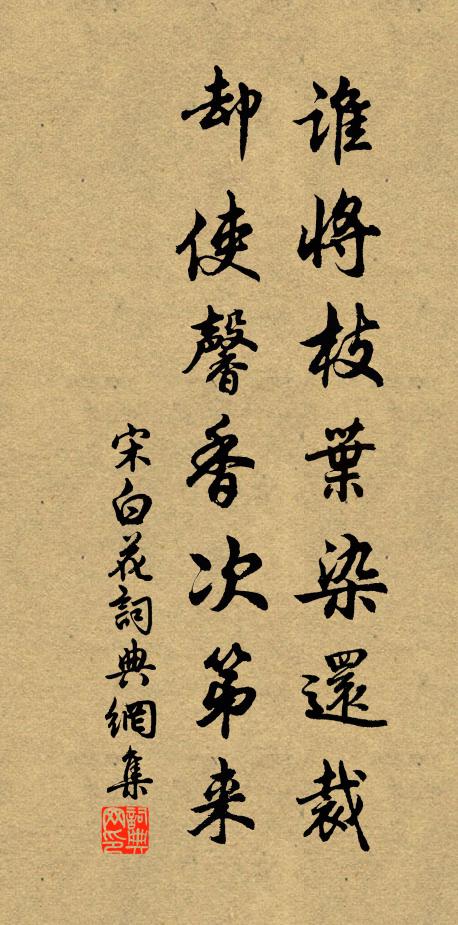 誰將枝葉染還裁
却使馨香次第来
宋白花詞典網集
詞典網印